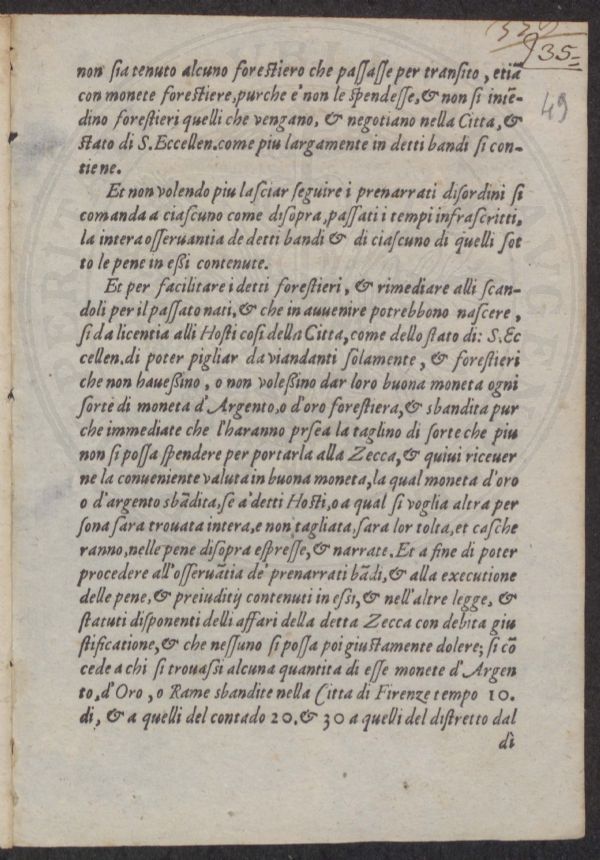 935=
49
non sia tenuto alcuno forestiero che passasse per transito, etiā
con monete forestiere, purche e' non le spendesse, & non si intē-
dino forestieri quelli che vengano, & negotiano nella Citta, &
stato di S. Eccellen. come piu largamente in detti bandi si con-
tiene.
Et non volendo piu lasciar seguire i prenarrati disordini si
comanda a ciascuno come disopra, passati i tempi infrascritti,
la intera osseruantia de detti bandi & di ciascuno di quelli sot
to le pene in essi contenute.
Et per facilitare i detti forestieri, & rimediare alli scan-
doli per il passato nati, & che in auuenire potrebbono nascere,
si da licentia alli Hosti cosi della Citta, come dello stato di: S. Ec
cellen. di poter pigliar da viandanti solamente, & forestieri
che non hauessino, o non volessino dar loro buona moneta ogni
sorte di moneta d'Argento, o d'oro forestiera, & sbandita pur
che immediate che l'haranno prsea la taglino di sorte che piu
non si possa spendere per portarla alla Zecca, & quiui riceuer
ne la conueniente valuta in buona moneta, la qual moneta d'oro
o d'argento sbādita, se a' detti Hosti, o a qual si voglia altra per
sona sara trouata intera, e non tagliata, sara lor tolta, et casche
ranno, nelle pene disopra espresse, & narrate. Et a fine di poter
procedere all'osseruātia de' prenarrati bādi, & alla executione
delle pene, & preiuditij contenuti in essi, & nell'altre legge, &
statuti disponenti delli affari della detta Zecca con debita giu
stificatione, & che nessuno si possa poi giustamente dolere; si cō
cede a chi si trouassi alcuna quantita di esse monete d'Argen
to, d'Oro, o Rame sbandite nella Citta di Firenze tempo 10.
di, & a quelli del contado 20. & 30 a quelli del distretto dal
dì